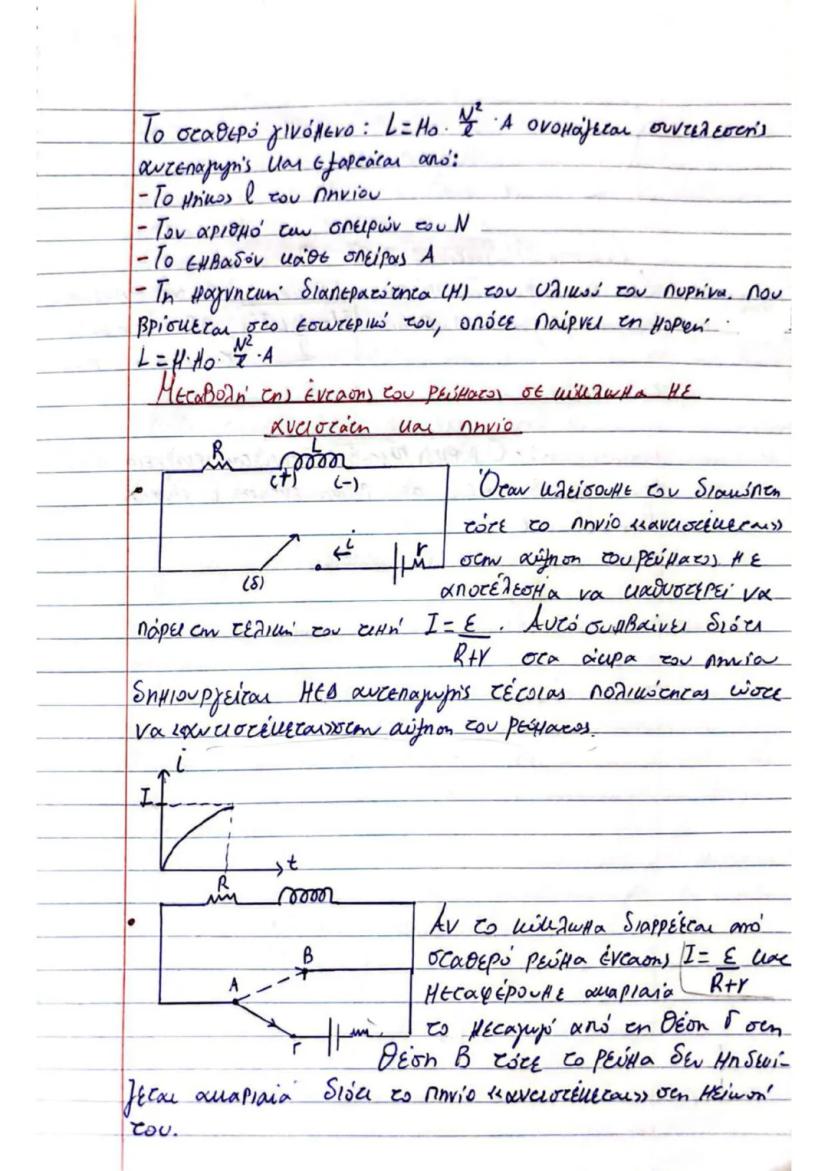 Το σταθερό γινόμενο: L = μ₀ · N²/l · A ονομάζεται συντελεστής
αυτεπαγωγής και εξαρτάται από:
- Το μήκος l του πηνίου
- Τον αριθμό των σπειρών του N
- Το εμβαδόν κάθε σπείρας A
- Τη μαγνητική διαπερατότητα (μ) του υλικού του πυρήνα. που
βρίσκεται στο εσωτερικό του, οπότε παίρνει τη μορφή
L = μ·μ₀ · N²/l · A
Μεταβολή της έντασης του ρεύματος σε κύκλωμα με
αντιστάτη και πηνίο
R L
(+) (-)
i r
(δ)
Όταν κλείσουμε τον διακόπτη
τότε το πηνίο «αντιστέκεται»
στην αύξηση του ρεύματος με
αποτέλεσμα να καθυστερεί να
πάρει την τελική του τιμή I = ε/R+r . Αυτό συμβαίνει διότι
στα άκρα του πηνίου
δημιουργείται ΗΕΔ αυτεπαγωγής τέτοιας πολικότητας ώστε
να «αντιστέκεται» στην αύξηση του ρεύματος.
i
I
t
R
B
A
Γ
Αν το κύκλωμα διαρρέεται από
σταθερό ρεύμα έντασης I = ε/R+r και
μεταφέρουμε ακαριαία
το μεταγωγό από τη θέση Γ στη
θέση Β τότε το ρεύμα δεν μηδενί-
ζεται ακαριαία διότι το πηνίο «αντιστέκεται» στη μείωσή
του.